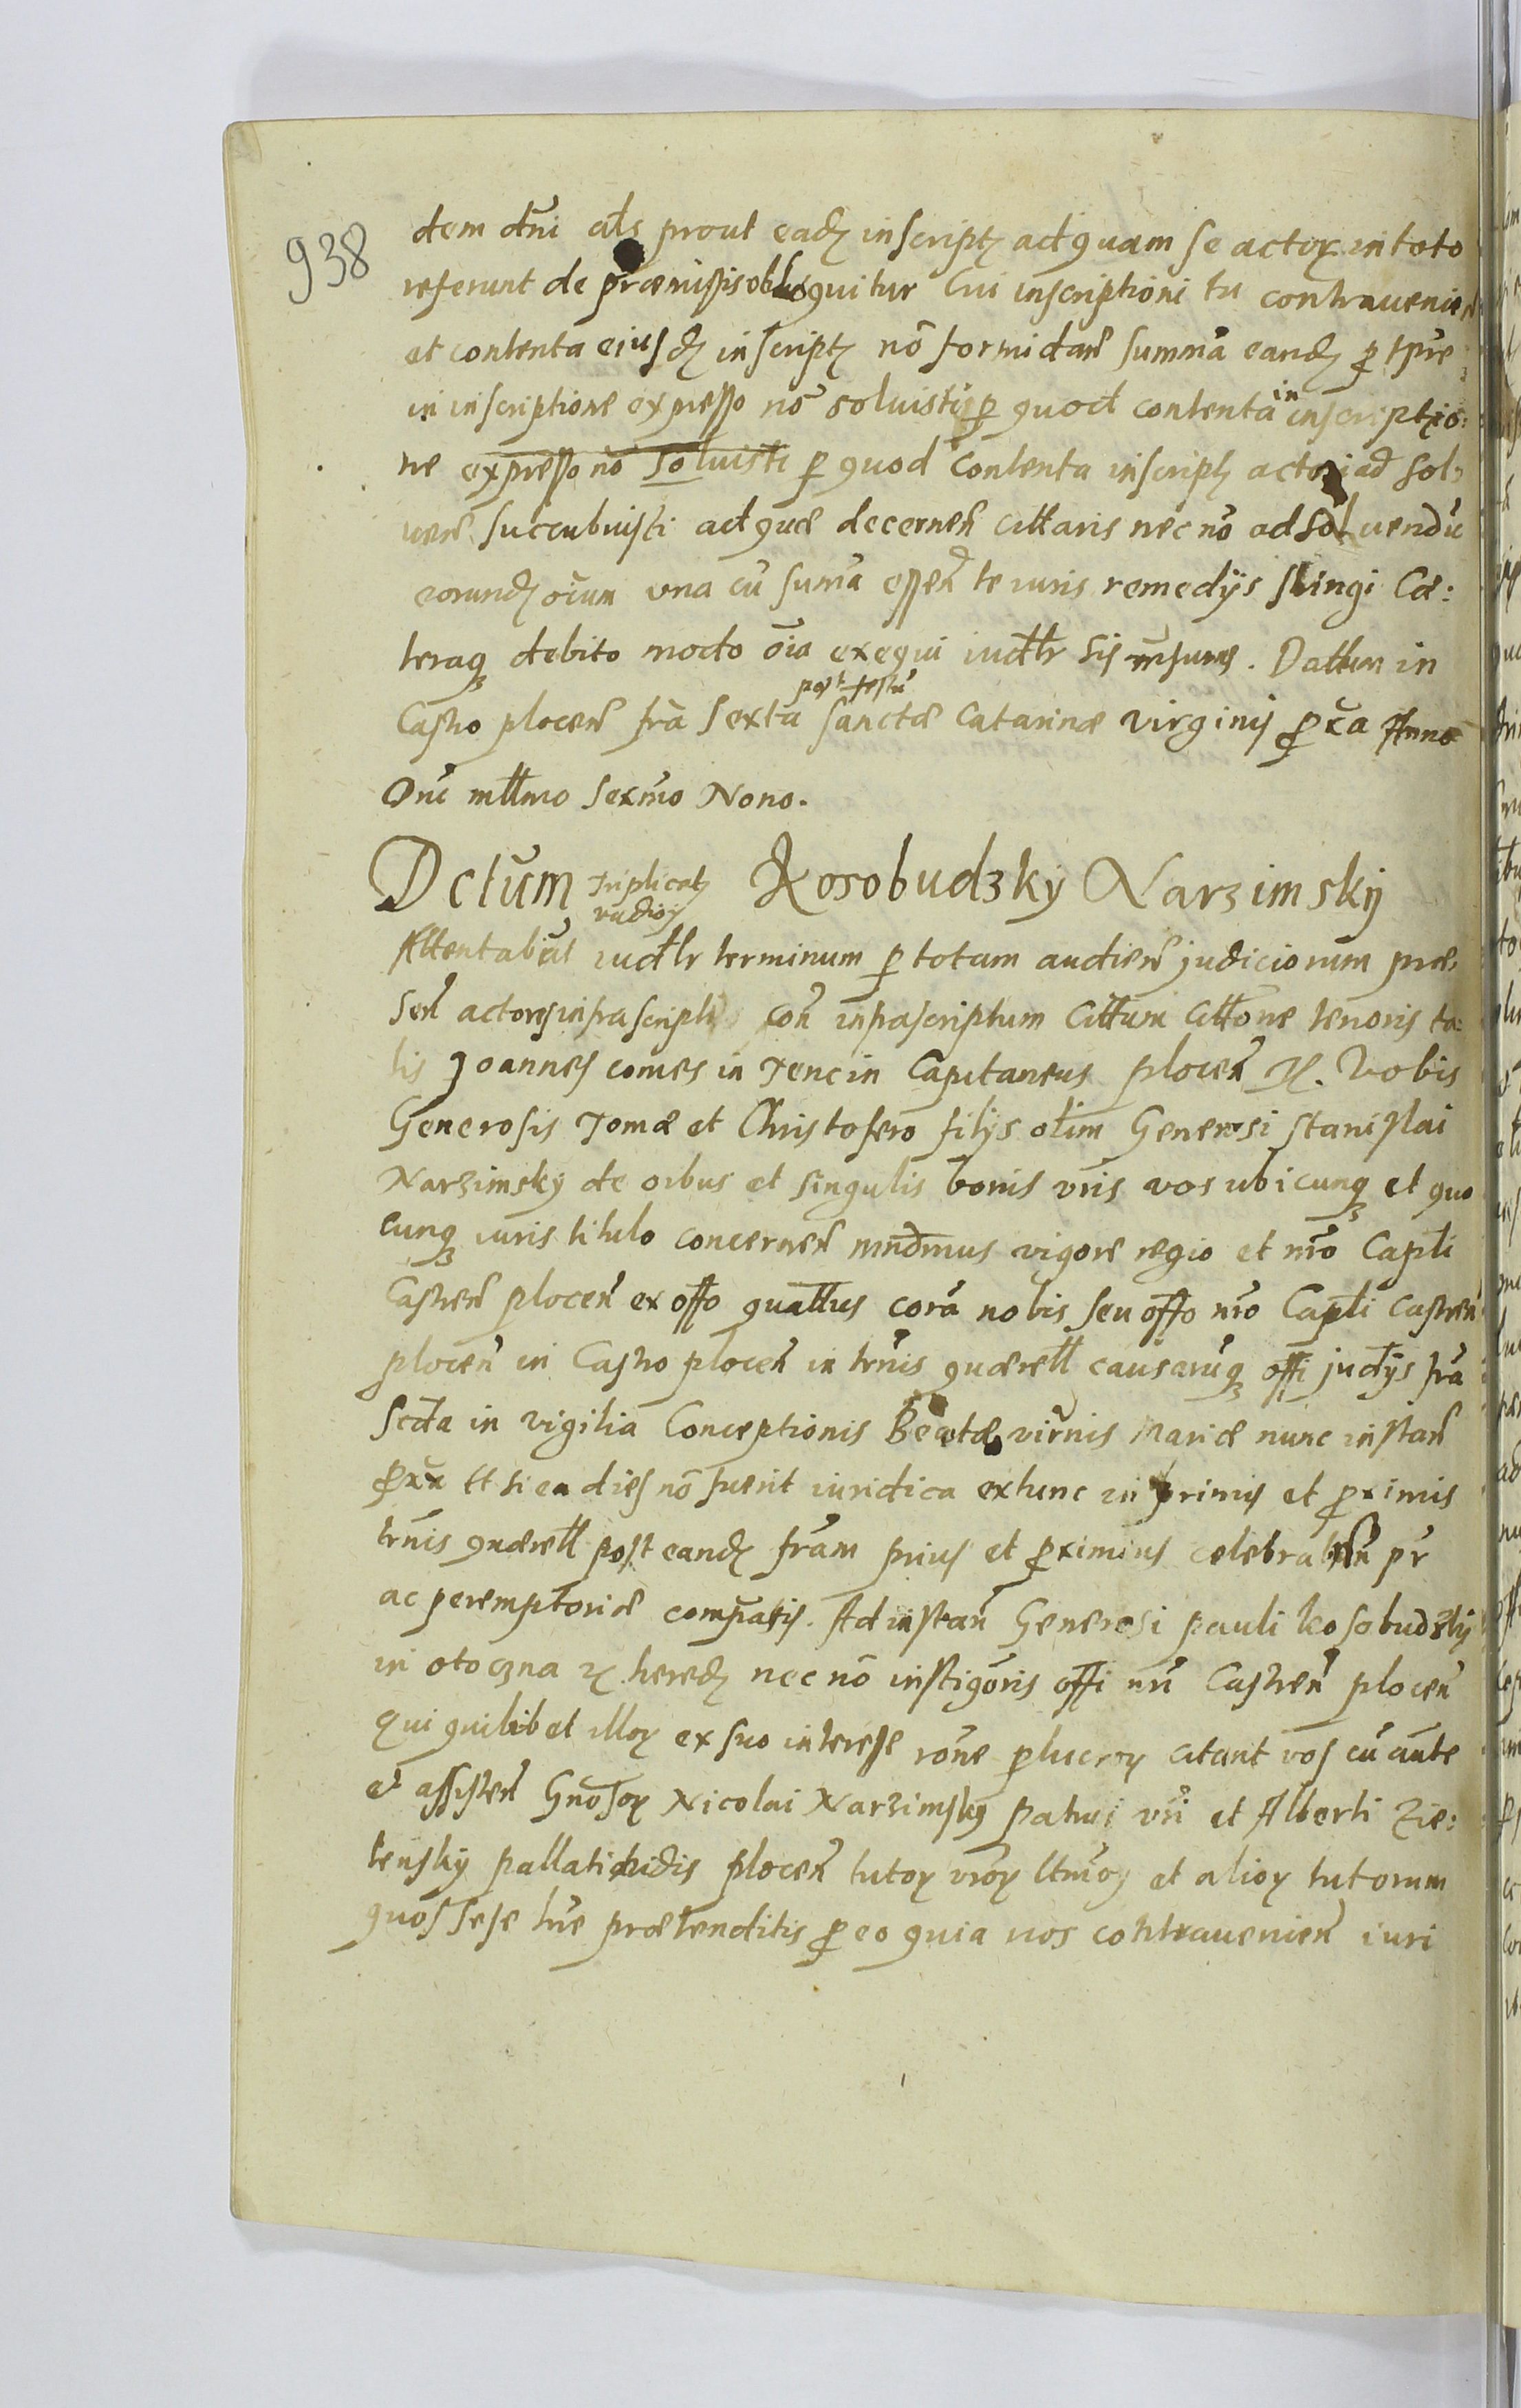 938
dem dni als prout eadꝫ inscriptꝫ ad quam se actoꝝ in toto
referunt de præmissis obloquitur Cui inscriptioni tu contraueniẽ
et contenta eiusdꝫ inscriptꝫ nõ formidañ summã eandꝫ ꝑ tp̃re
in inscriptione expresso nõ soluisti ꝑ quod contenta in inscriptio:
ne expresso nõ soluisti ꝑ quod contenta inscriptꝫ actori ad sol,
ueñ succubuisti ad quæ decerneñ cittaris nec nõ ad soluendũ
eorundꝫ oĩum vna cũ suma esseñ te iuris remedijs stingi Cæ:
teraqꝫ debito modo oĩa exequi iudltr sis rñsurus. Dattum in
post festũ
Castro ploceñ frã sexta sanctæ Catarinæ virginis ꝓxa Anno
Dni mllmo sexmo Nono.
Dctum triplicatꝫ Kosobudzky Narzimsky
vadioꝝ
Attentabat iudltr terminum ꝑ totam audieñ judiciorum præ,
señ actores infrascripti coñ infrascriptum Cittum cittone tenoris ta:
lis Joannes comes in Tencin Capitaneus ploceñ ꝝ. Vobis
Generosis Tomæ et Christofero filijs olim Generosi Stanislai
Narzimsky de oibus et singulis bonis vris vos ubicunqꝫ et quo
cunqꝫ iuris titulo concerneñ mndmus vigore regio et nro Capli
Castreñ ploceñ ex offo quattus corã nobis seu offo nro Capli castreñ
ploceñ in Castro ploceñ in trñis quærell causarũqꝫ offi judijs frã
scda in vigilia Conceptionis Beatæ virñis Mariæ nunc instañ
ꝓxa Et si ea dies nõ fuerit iuridica extunc in primis et ꝓximis
trñis quærell post eandꝫ frãm prius et ꝓximius celebrañ pr
ac peremptoriæ compatis. Ad instañ Generosi pauli kosobudzky
in otoczna ꝝ heredꝫ nec nõ instigoris offi nri Castreñ ploceñ
qui quilibet illoꝝ ex suo interesse rõne ꝑlucroꝝ citant vos cũ aũte
et assisteñ Gnosoꝝ Nicolai Narzimsky patrui vri et Alberti Zie:
lensky pallatinidis ploceñ tutoꝝ vroꝝ ltimoꝝ et alioꝝ tutorum
quos sese hre prætenditis ꝓ eo quia vos contraueñieñ iuri